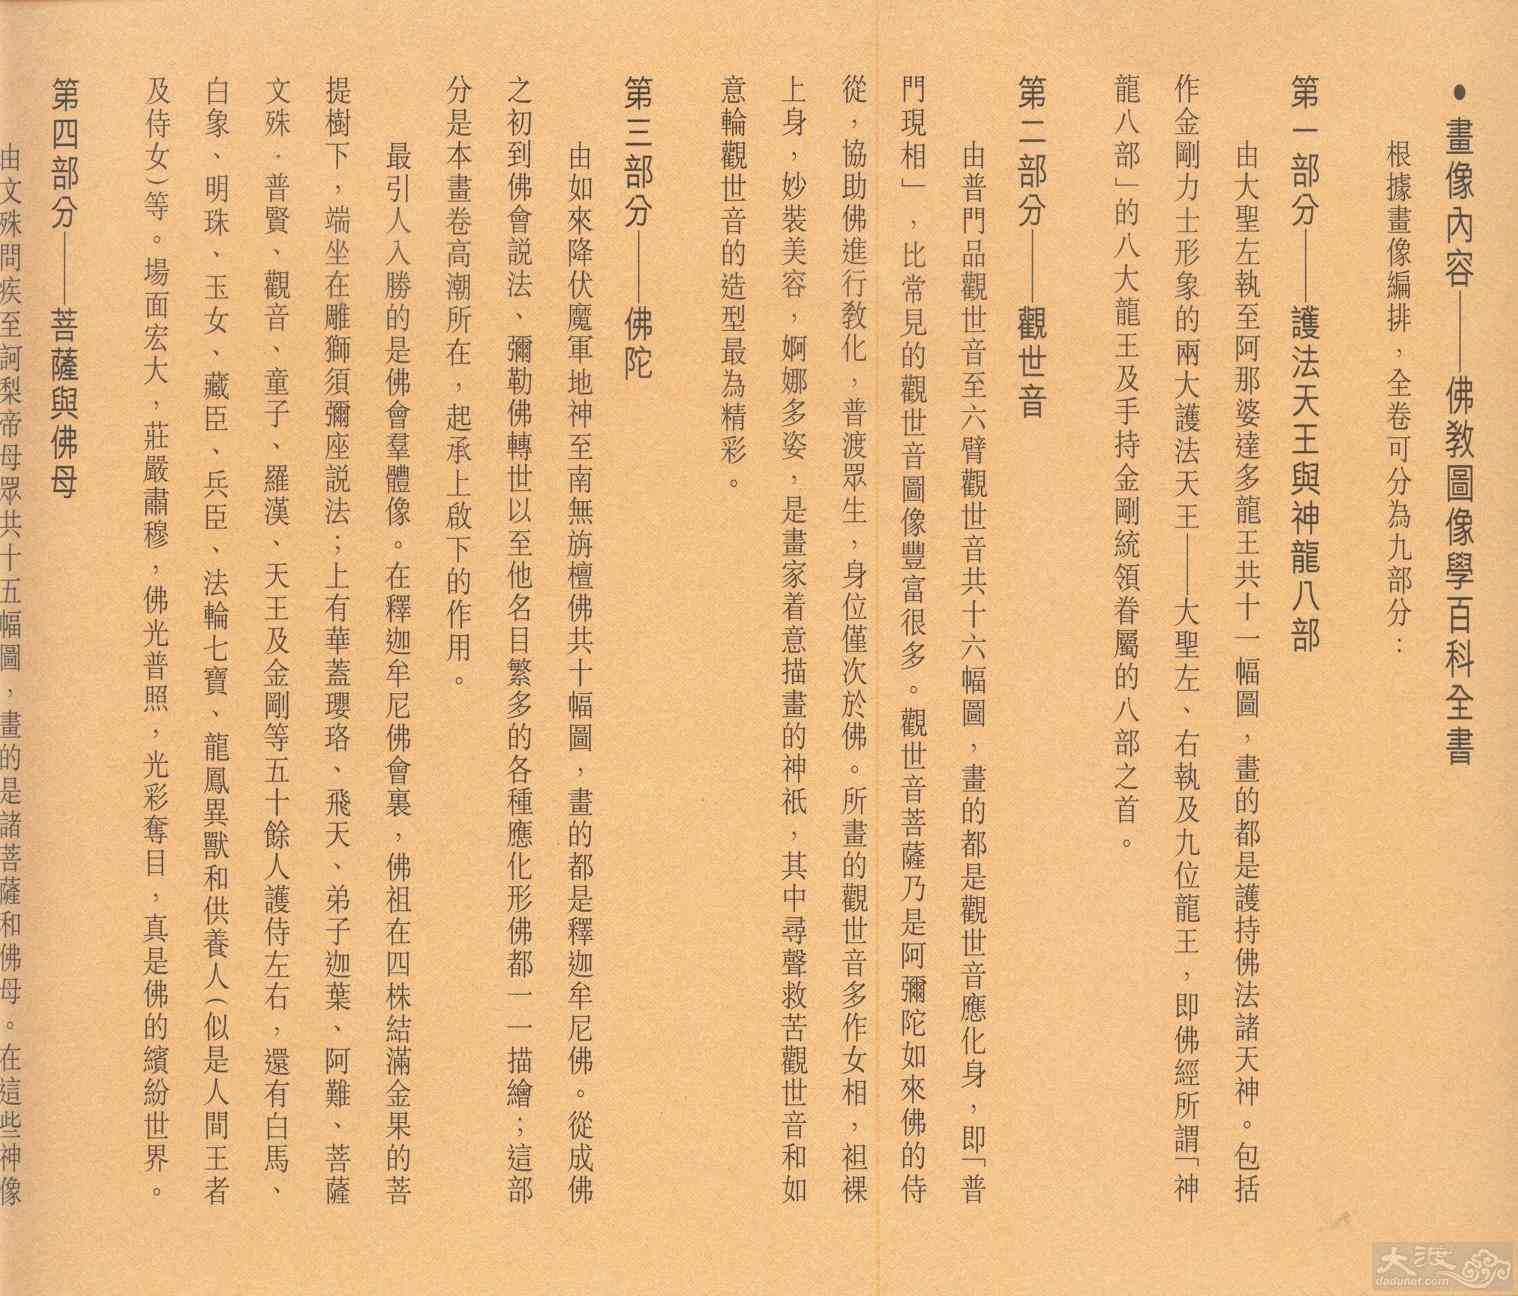 ●畫像內容——佛教圖像學百科全書
根據畫像編排，全卷可分為九部分：
第一部分——護法天王與神龍八部
由大聖左執至阿那婆達多龍王共十一幅圖，畫的都是護持佛法諸天神。包括
作金剛力士形象的兩大護法天王——大聖左、右執及九位龍王，即佛經所謂「神
龍八部」的八大龍王及手持金剛統領眷屬的八部之首。
第二部分——觀世音
由普門品觀世音至六臂觀世音共十六幅圖，畫的都是觀世音應化身，即「普
門現相」，比常見的觀世音圖像豐富很多。觀世音菩薩乃是阿彌陀如來佛的侍
從，協助佛進行教化，普渡眾生，身位僅次於佛。所畫的觀世音多作女相，袒裸
上身，妙裝美容，婀娜多姿，是畫家着意描畫的神祇，其中尋聲救苦觀世音和如
意輪觀世音的造型最為精彩。
第三部分——佛陀
由如來降伏魔軍地神至南無旃檀佛共十幅圖，畫的都是釋迦牟尼佛。從成佛
之初到佛會說法、彌勒佛轉世以至他名目繁多的各種應化形佛都一一描繪；這部
分是本畫卷高潮所在，起承上啟下的作用。
最引人入勝的是佛會羣體像。在釋迦牟尼佛會裏，佛祖在四株結滿金果的菩
提樹下，端坐在雕獅須彌座說法；上有華蓋瓔珞、飛天、弟子迦葉、阿難、菩薩
文殊．普賢、觀音、童子、羅漢、天王及金剛等五十餘人護侍左右，還有白馬、
白象、明珠、玉女、藏臣、兵臣、法輪七寶、龍鳳異獸和供養人(似是人間王者
及侍女)等。場面宏大，莊嚴肅穆，佛光普照，光彩奪目，真是佛的繽紛世界。
第四部分——菩薩與佛母
由文殊問疾至訶梨帝母眾共十五幅圖，畫的是諸菩薩和佛母。在這些神像
大渡
dadunet.com